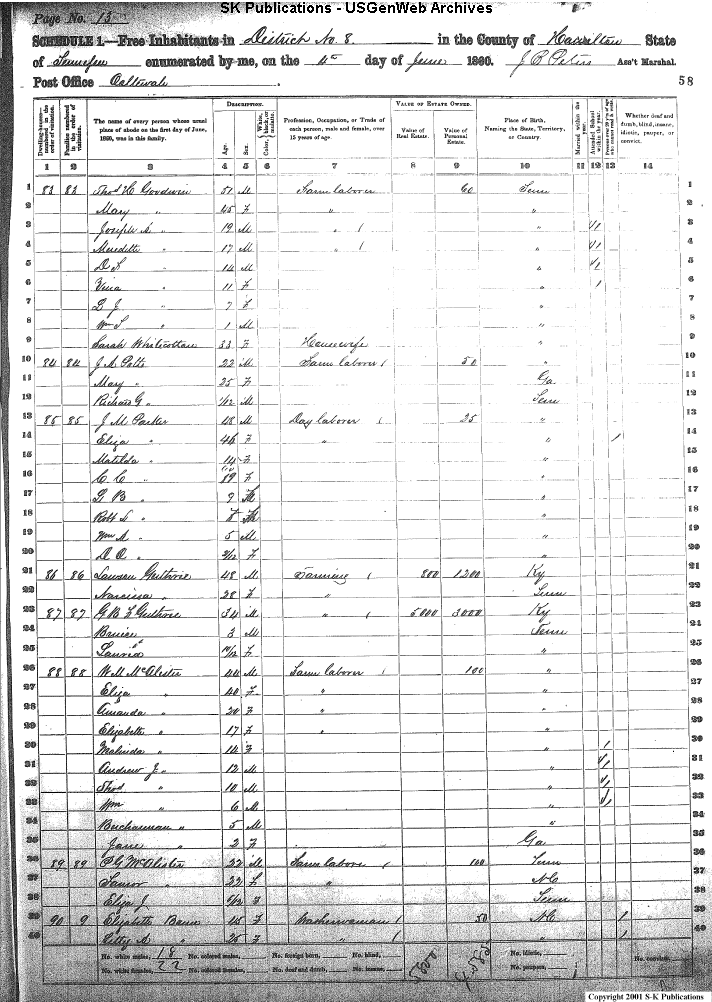 SK Publications - USGenWeb Archives
Page No. 13
SCHEDULE 1.—Free Inhabitants in District No. 8. in the County of Hamilton State
of Tennessee enumerated by me, on the 4th day of June 1860. Ass't Marshal.
Post Office Ooltewah
58
Dwelling-houses—numbered in the order of visitation.
Families numbered in the order of visitation.
The name of every person whose usual place of abode on the first day of June, 1860, was in this family.
DESCRIPTION.
Age.
Sex.
Color, White, black, or mulatto.
Profession, Occupation, or Trade of each person, male and female, over 15 years of age.
VALUE OF ESTATE OWNED.
Value of Real Estate.
Value of Personal Estate.
Place of Birth, Naming the State, Territory, or Country.
Married within the year.
Attended School within the year.
Persons over 20 y'rs of age who cannot read & write.
Whether deaf and dumb, blind, insane, idiotic, pauper, or convict.
1 2 3 4 5 6 7 8 9 10 11 12 13 14
1 83 83 Thos H Goodwin 51 M Farm laborer 60 Tenn 1
2 Mary " 45 F " " 2
3 Joseph " 19 M " / " 1 3
4 Meredith " 17 M " / " 1 4
5 14 M " 1 5
6 " 11 F " 1 6
7 G J " 7 F " 7
8 Wm S " 1 M " 8
9 Sarah 33 F Housewife " 9
10 84 84 J A Potts 22 M Farm laborer / 50 " 10
11 Mary " 25 F Ga 11
12 Richard G " M Tenn 12
13 85 85 J M Parker 48 M Day laborer / 25 " 13
14 Eliza " 46 F " " 1 14
15 Matilda " 14 F " 15
16 C C " F " 16
17 G B " 9 " 17
18 Robt L " " 18
19 Wm A " 5 M " 19
20 " F " 20
21 86 86 Lawson Guthrie 48 M Farming / 800 1200 Ky 21
22 Narcissa " 28 F " Tenn 22
23 87 87 Guthrie 34 M " / 5000 3000 Ky 23
24 3 M Tenn 24
25 F " 25
26 88 88 W M McAlister 44 M Farm laborer / 100 " 26
27 Eliza " 40 F " " 27
28 Amanda " 20 F " " 28
29 Elizabeth " 17 F " " 29
30 Malinda " 14 F " 1 30
31 Andrew J " 12 M " 1 31
32 Thos " 10 M " 1 32
33 Wm " 6 M " 1 33
34 Buchannan " 5 M " 34
35 Jane " 2 F Ga 35
36 89 89 McAlister 22 M Farm labore / 100 Tenn 36
37 " 22 F " NC 37
38 Eliza J F Tenn 38
39 90 9 Elizabeth F Washerwoman / 50 NC 1 39
40 F " / " 1 40
No. white males, 18 No. colored males, No. foreign born, No. blind, No. idiotic, No. convicts,
No. white females, 22 No. colored females, No. deaf and dumb, No. insane, No. paupers,
5800
Copyright 2001 S-K Publications